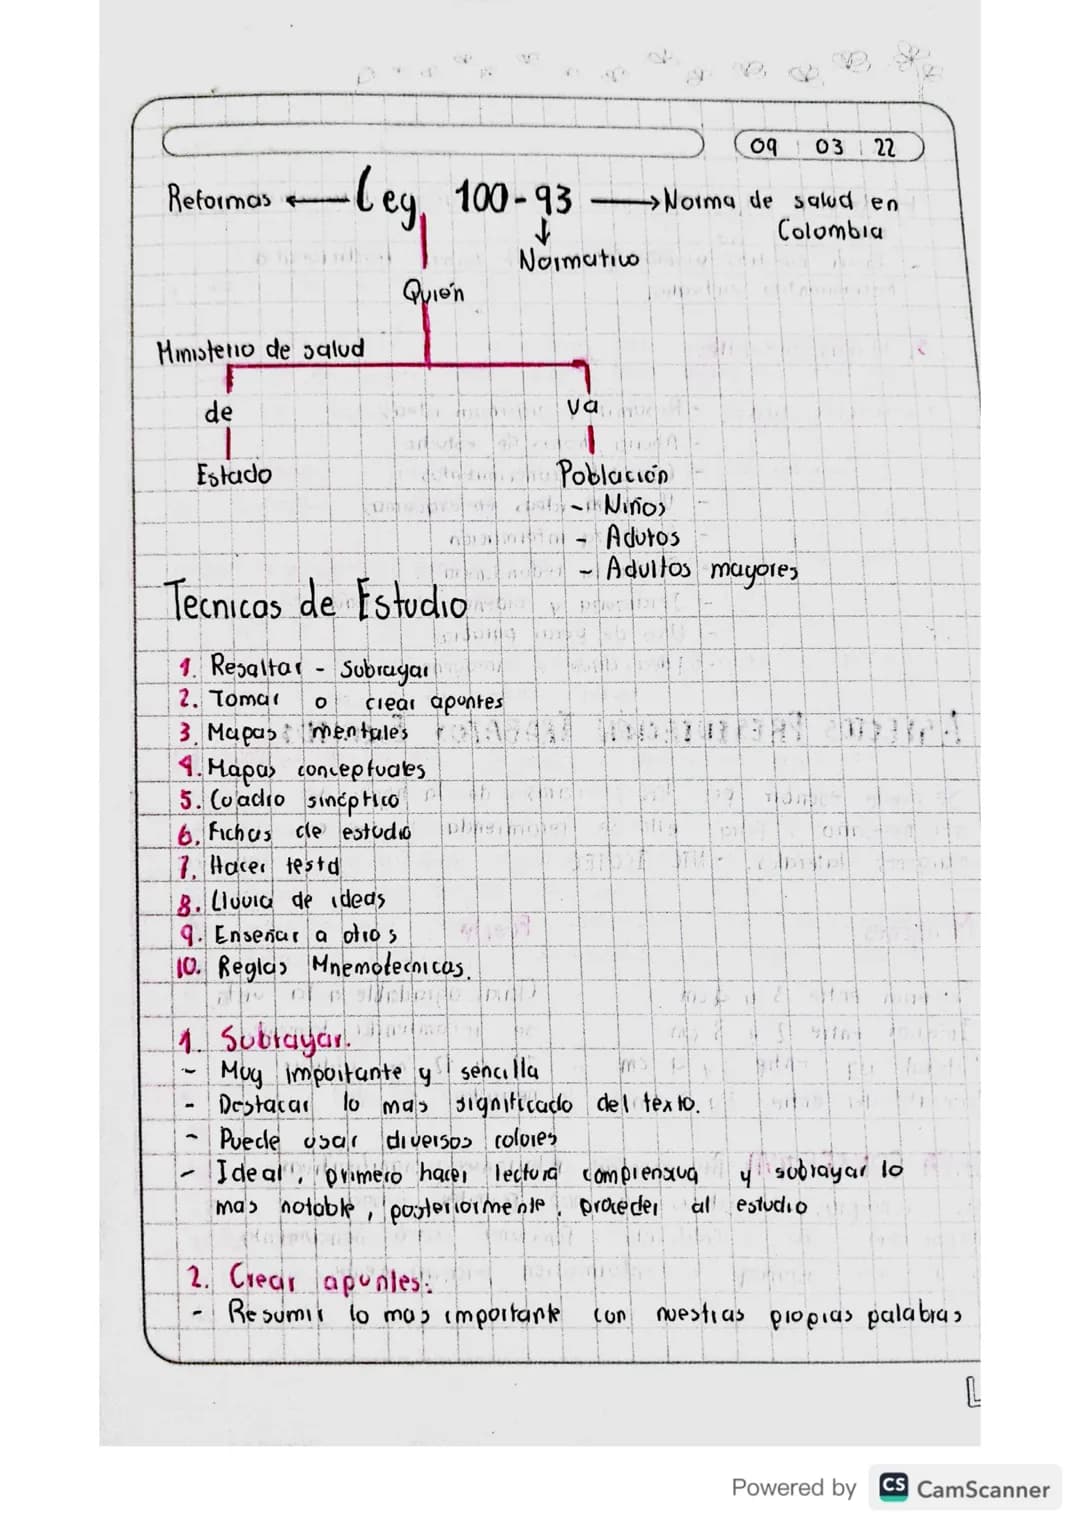 09 03 22
Reformas ← Ley 100-93 → Norma de salud en
Colombia
↓
Normativo
Quién
Ministerio de salud
de va
Estado Población
- Niños
- Adutos
- Adultos mayores
Tecnicas de Estudio
1. Resaltar - Subrayar
2. Tomar o crear apuntes
3. Mapas mentales
4. Mapas conceptuales
5. Cuadro sinóptico
6. Fichas de estudio
7. Hacer testd
8. Lluvia de ideas
9. Enseñar a otros
10. Reglas Mnemotecnicas.
1. Subrayar.
- Muy importante y sencilla
- Destacar lo mas significado del texto.
- Puede usar diversos colores
- Ideal, primero hacer lectura comprensiva y subrayar lo
mas notable, posteriormente, proceder al estudio
2. Crear apuntes:
- Resumir lo mas importante con nuestras propias palabras
Powered by CS CamScanner